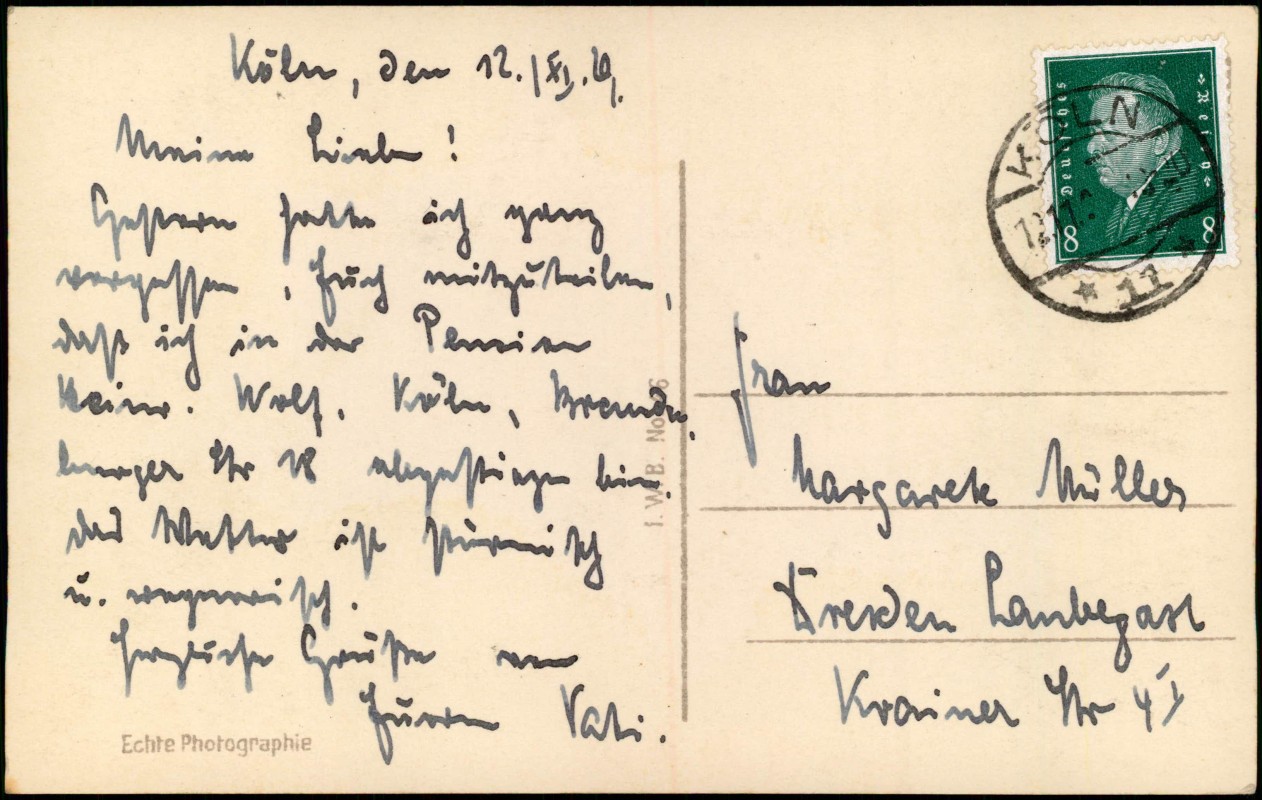 Köln, den 12./XI. 29.
Meine Lieben!
Gestern hatte ich ganz
vergessen, Euch mitzuteilen,
daß ich in der Pension
Wolf, Köln, Branden
burger Str 18 abgestiegen bin.
das Wetter ist stürmisch
u. regnerisch.
Herzliche Grüße von
Eurem Vati.
Echte Photographie
I. W. B. No
Deutsches Reich
8 8
KÖLN
12.11.
* 11 *
Frau
Margarete Müller
Dresden Laubegast
Krainer Str 4 I